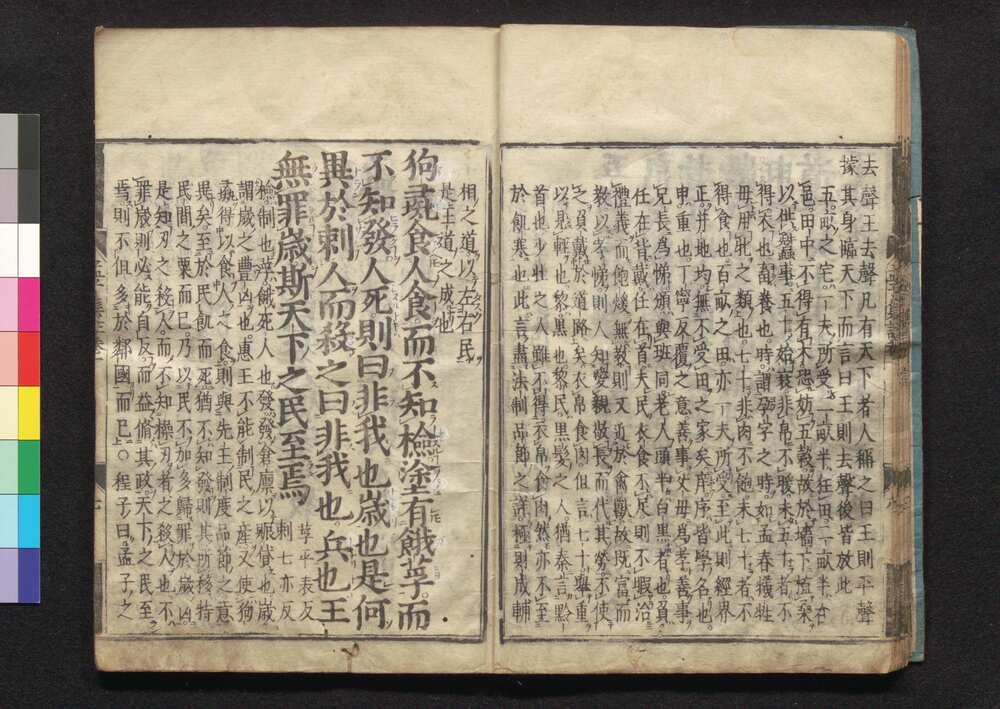 去聲王去聲凡有天下者人稱之曰王則平聲
據其身臨天下而言曰王則去聲後皆放此
五畝之宅一夫所受二畝半在田二畝半在
邑田中不得有木恐妨五穀故於墻下植桒
以供蠶事五十始衰非帛不暖未五十者不
得衣也畜養也時謂孕字之時如孟春犧牲
毋用牝之類也七十非肉不飽未七十者不
得食也百畝之田亦一夫所受至此則經界
正井地均無不受田之家矣庠序皆學名也
申重也丁寧反覆之意善事父母爲孝善事
兄長爲悌頒與班同老人頭半白黑者也負
任在背戴任在首夫民衣食不足則不暇治
禮義而飽煖無教則又近於禽獸故既富而
教以孝悌則人知愛親敬長而代其勞不使
之負戴於道路矣衣帛食肉但言七十舉重
以見輕也黎黑也黎民黑髮之人猶秦言黔
首也少壯之人雖不得衣帛食肉然亦不至
於飢寒也此言盡法制品節之詳極則成輔
相之道以左右民
是王道之成也
狗彘食人食而不知檢塗有餓莩而
不知發人死則曰非我也歲也是何
異於刺人而殺之曰非我也兵也王
無罪歲斯天下之民至焉
莩平表反
刺七亦反
檢制也莩餓死人也發發倉廩以賑貸也歲
謂歲之豐凶也惠王不能制民之產又使狗
彘得以食人之食則與先王制度品節之意
異矣至於民飢而死猶不知發則其所移特
民間之粟而已乃以民不加多歸罪於歲凶
是知刃之殺人而不知操刃者之殺人也不
罪歲則必能自反而益脩其政天下之民至
焉則不但多於鄰國而已○程子曰孟子之